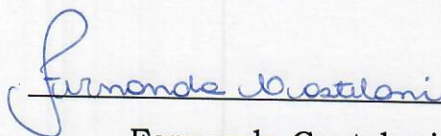 Fernanda Castelani
Fernanda Castelani